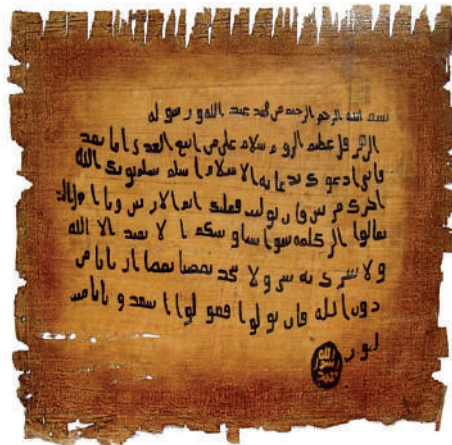 بسم الله الرحمن الرحيم من محمد عبد الله ورسوله
الى هرقل عظيم الروم سلام على من اتبع الهدى اما بعد
فانى ادعوك بدعاية الاسلام اسلم تسلم يوتك الله
اجرك مرتين فان توليت فعليك اثم الاريسين ويا اهل الكتا
تعالوا الى كلمة سوا بيننا وبينكم ا لا نعبد الا الله
ولا نشرك به شى ولا يتخذ بعضنا بعضا اربابا من
دون الله فان تولوا فقولوا اشهدوا بانا مس
لمون
الله
رسول
محمد